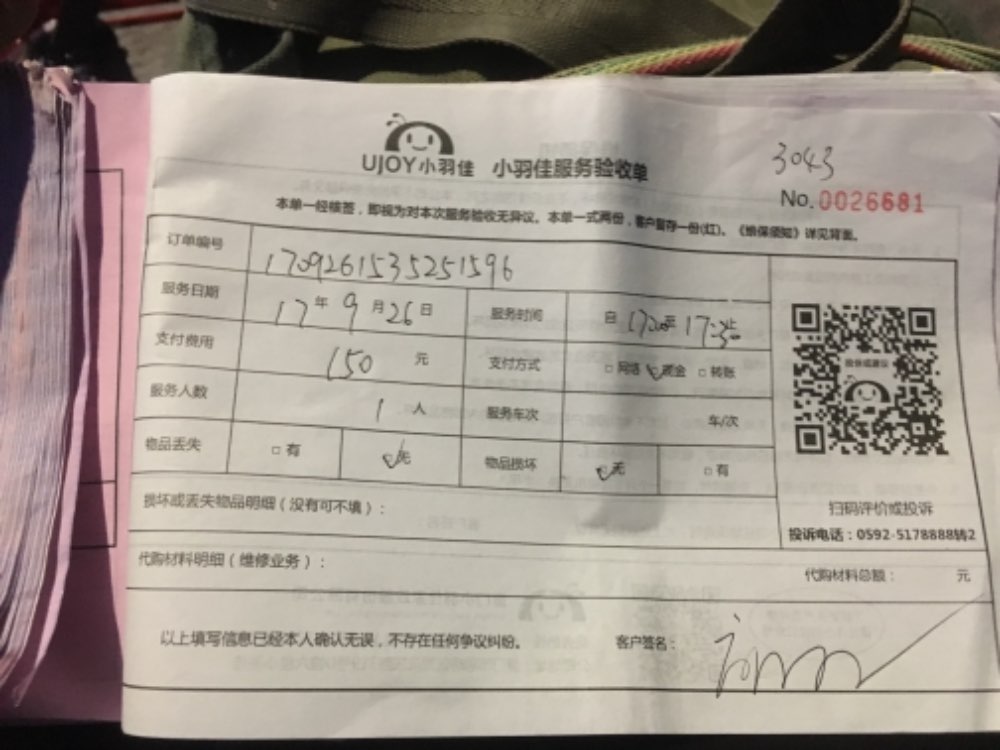 3043
UJOY小羽佳 小羽佳服务验收单
No.0026681
本单一经核签，即视为对本次服务验收无异议。本单一式两份，客户留存一份(红)。《维保须知》详见背面。
订单编号 1709261535251596
服务日期 17年9月26日 服务时间 自 17:00至17:30止
支付费用 150 元 支付方式 □网络 ☑现金 □转账
服务人数 1 人 服务车次 车/次
物品丢失 □有 ☑无 物品损坏 ☑无 □有
损坏或丢失物品明细（没有可不填）：
扫码评价或投诉
投诉电话：0592-5178888转2
代购材料明细（维修业务）：
代购材料总额： 元
以上填写信息已经本人确认无误，不存在任何争议纠纷。 客户签名：